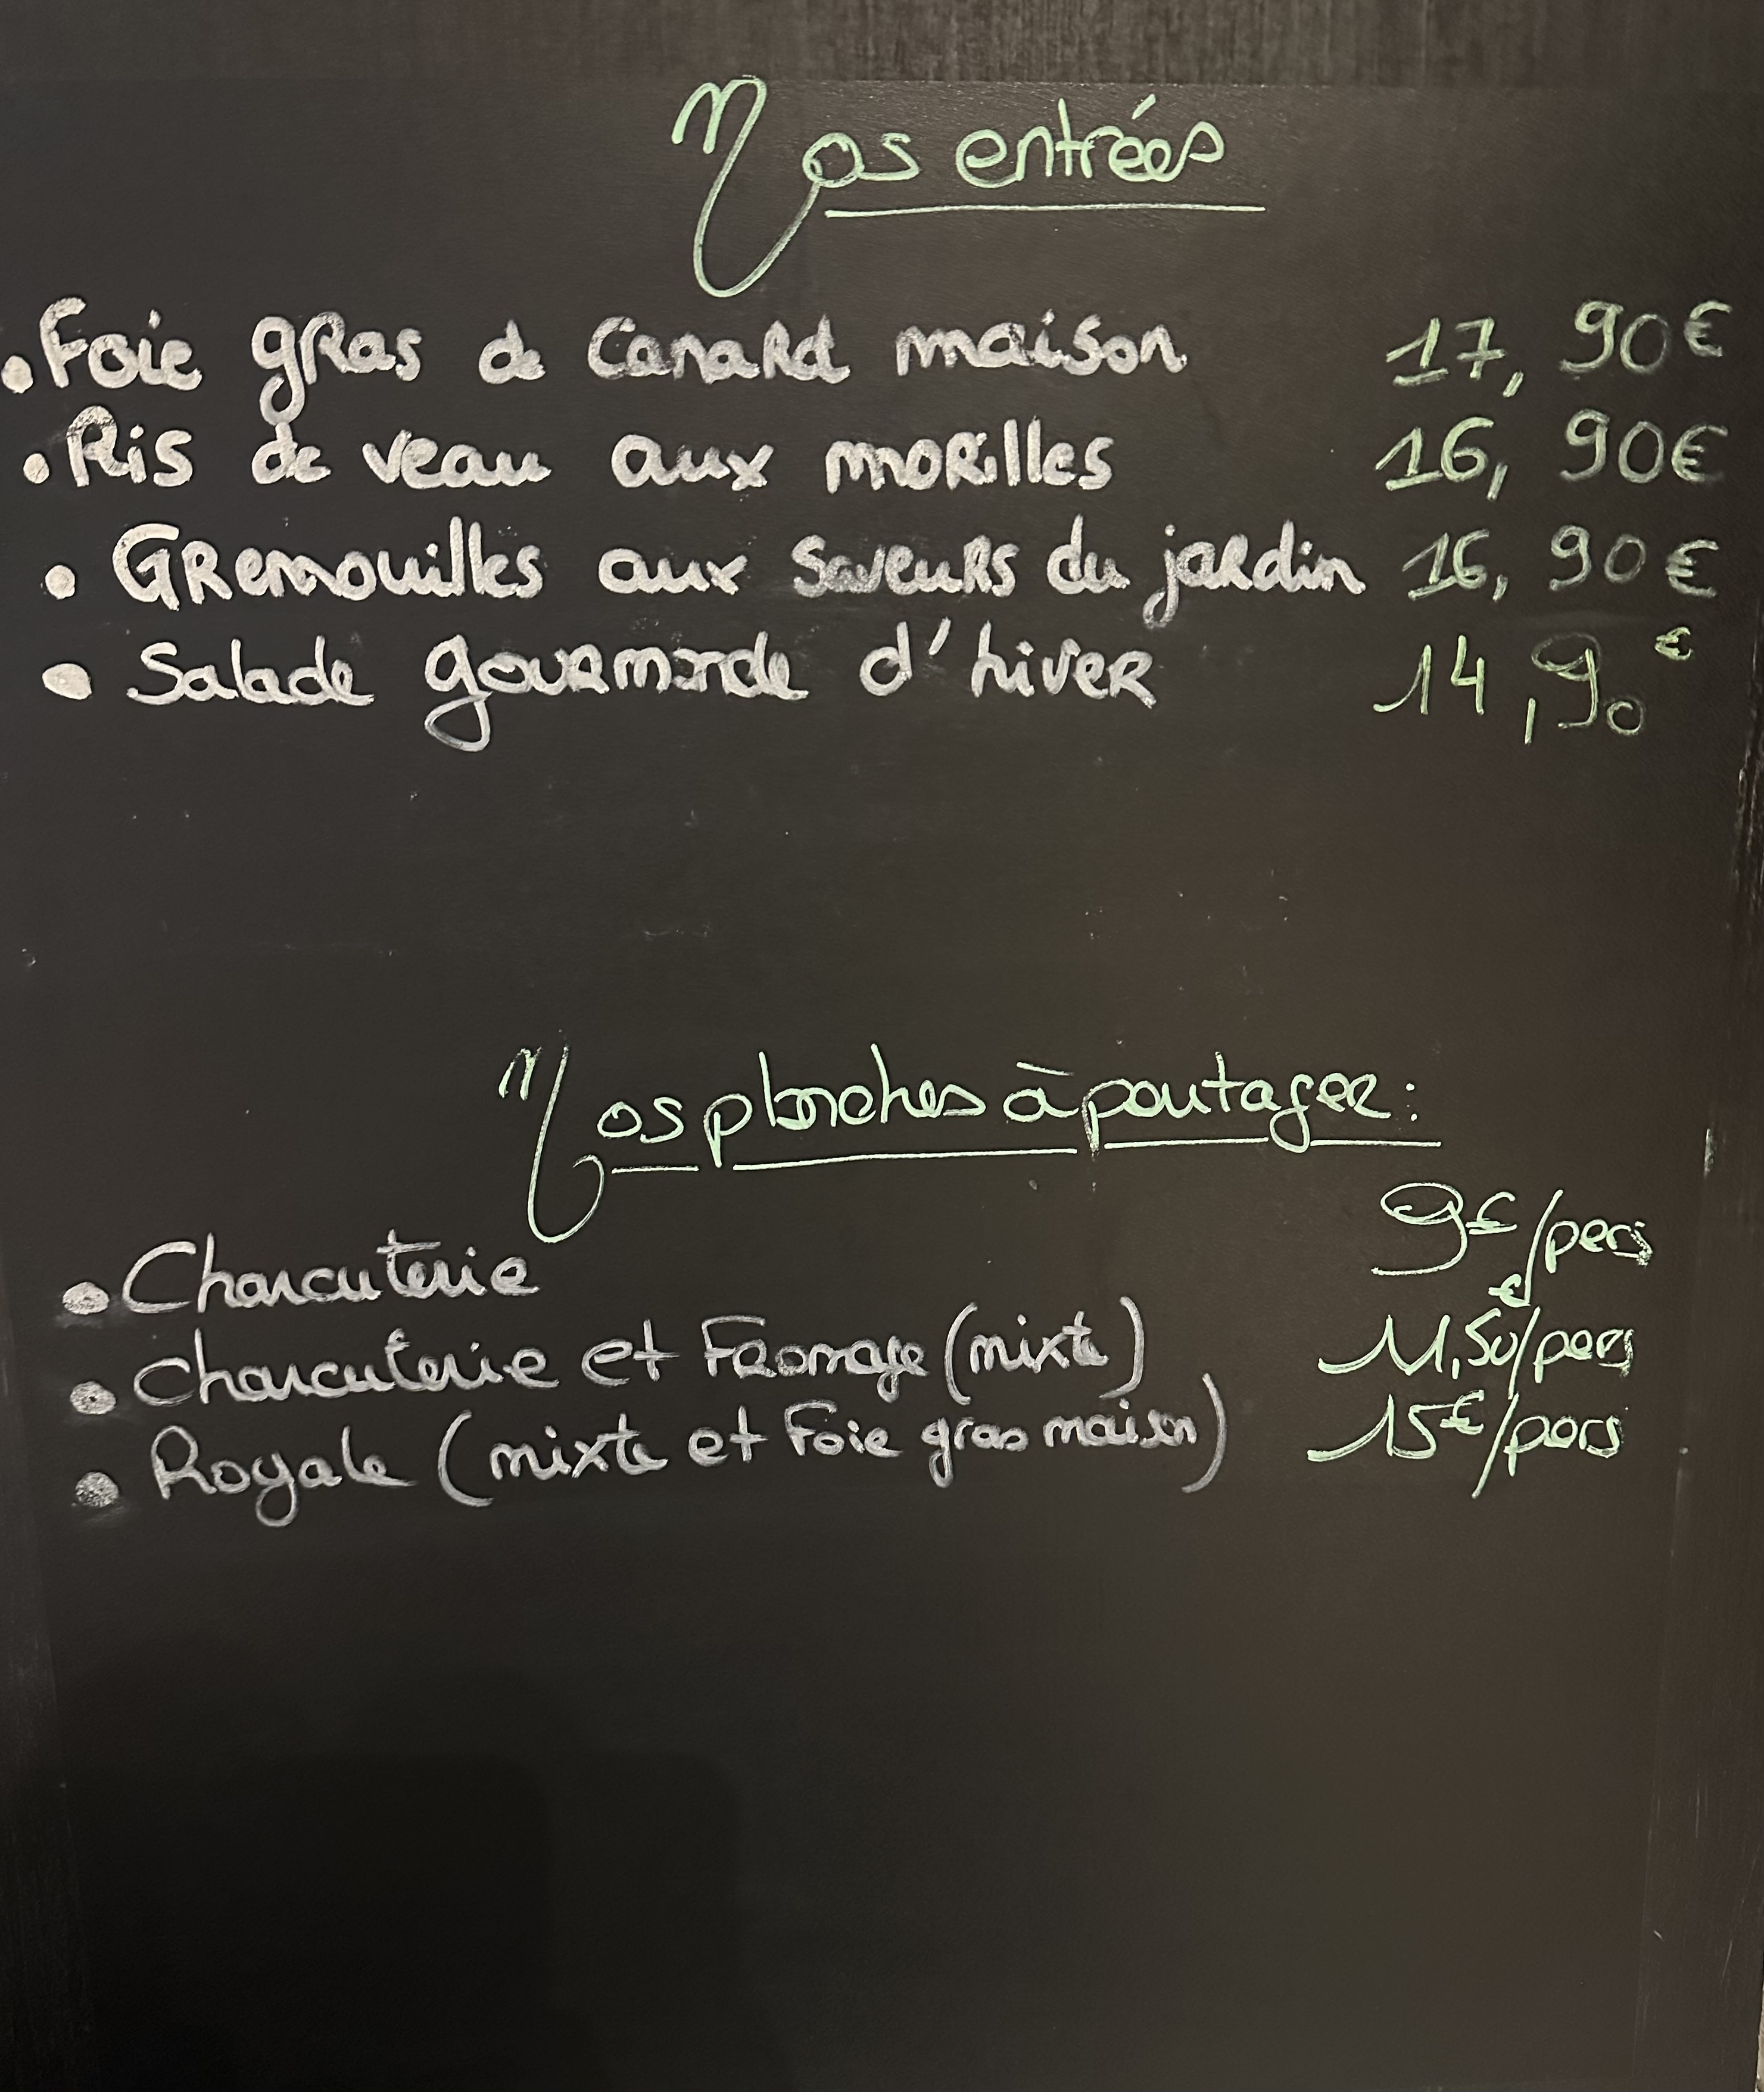 Nos entrées
• Foie gras de Canard maison 17,90€
• Ris de veau aux morilles 16,90€
• Grenouilles aux saveurs du jardin 16,90€
• Salade gourmande d'hiver 14,90€
Nos planches à partager :
• Charcuterie 9€/pers
• Charcuterie et Fromage (mixte) 11,50€/pers
• Royale (mixte et Foie gras maison) 15€/pers